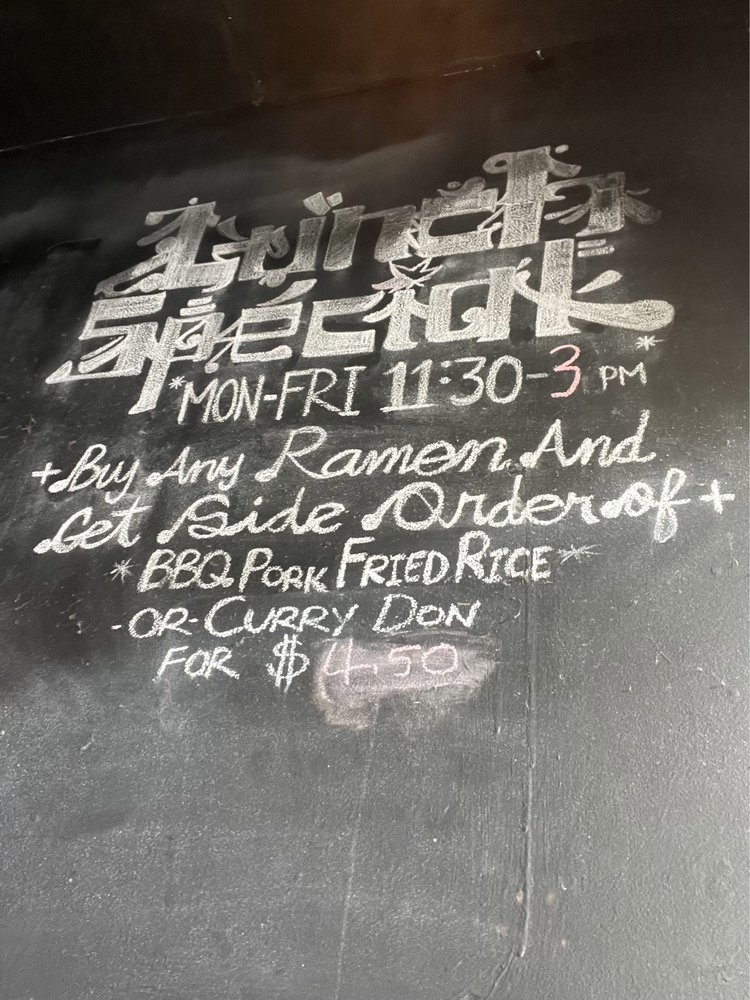 Lunch
Special
*MON-FRI 11:30-3 PM*
+Buy Any Ramen And
Get Side Order of+
*BBQ PORK FRIED RICE*
-OR- CURRY DON
FOR $4.50